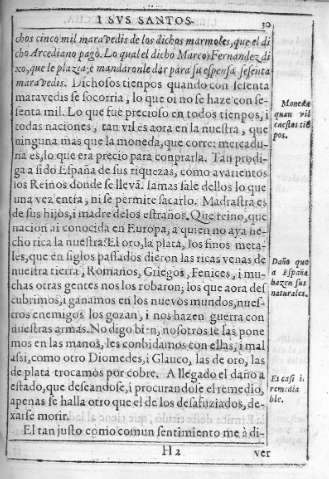 I SVS SANTOS.
30
chos cinco mil maravedis de los dichos marmoles, que el di
cho Arcediano pagò. Lo qual el dicho Marcos Fernandez di
xo, que le plazia; e mandaronle dàr para su espensa sesenta
maravedis. Dichosos tienpos quando con sesenta
maravedis se socorria, lo que oi no se haze con se-
senta mil. Lo que fuè precioso en todos tienpos, i
todas naciones, tan vil es aora en la nuestra, que
ninguna mas que la moneda, que corre: mercadu-
ria es, lo que era precio para conprarla. Tan prodi-
ga a sido España de sus riquezas, como avarientos
los Reinos donde se lleva. Iamas sale dellos lo que
una vez entra, ni se permite sacarlo. Madrastra es
de sus hijos, i madre de los estraños. Que reino, que
nacion ai conocida en Europa, a quien no aya he-
cho rica la nuestra? El oro, la plata, los finos meta-
les, que en siglos passados dieron las ricas venas de
nuestra tierra, Romanos, Griegos, Fenices, i mu-
chas otras gentes nos los robaron; los que aora des
cubrimos, i ganamos en los nuevos mundos, nues-
tros enemigos los gozan, i nos hazen guerra con
nuestras armas. No digo bien, nosotros se las pone
mos en las manos, les conbidamos con ellas, i mal
assi, como otro Diomedes, i Glauco, las de oro, las
de plata trocamos por cobre. A llegado el daño a
estado, que deseandose, i procurandole el remedio,
apenas se halla otro que el de los desafuziados, de-
xarse morir.
El tan justo como comun sentimiento me à di-
H 2
ver
Moneda
quan vil
en estos tie
pos.
Daño que
a España
hazen sus
naturales.
Es casi i-
remedia
ble.